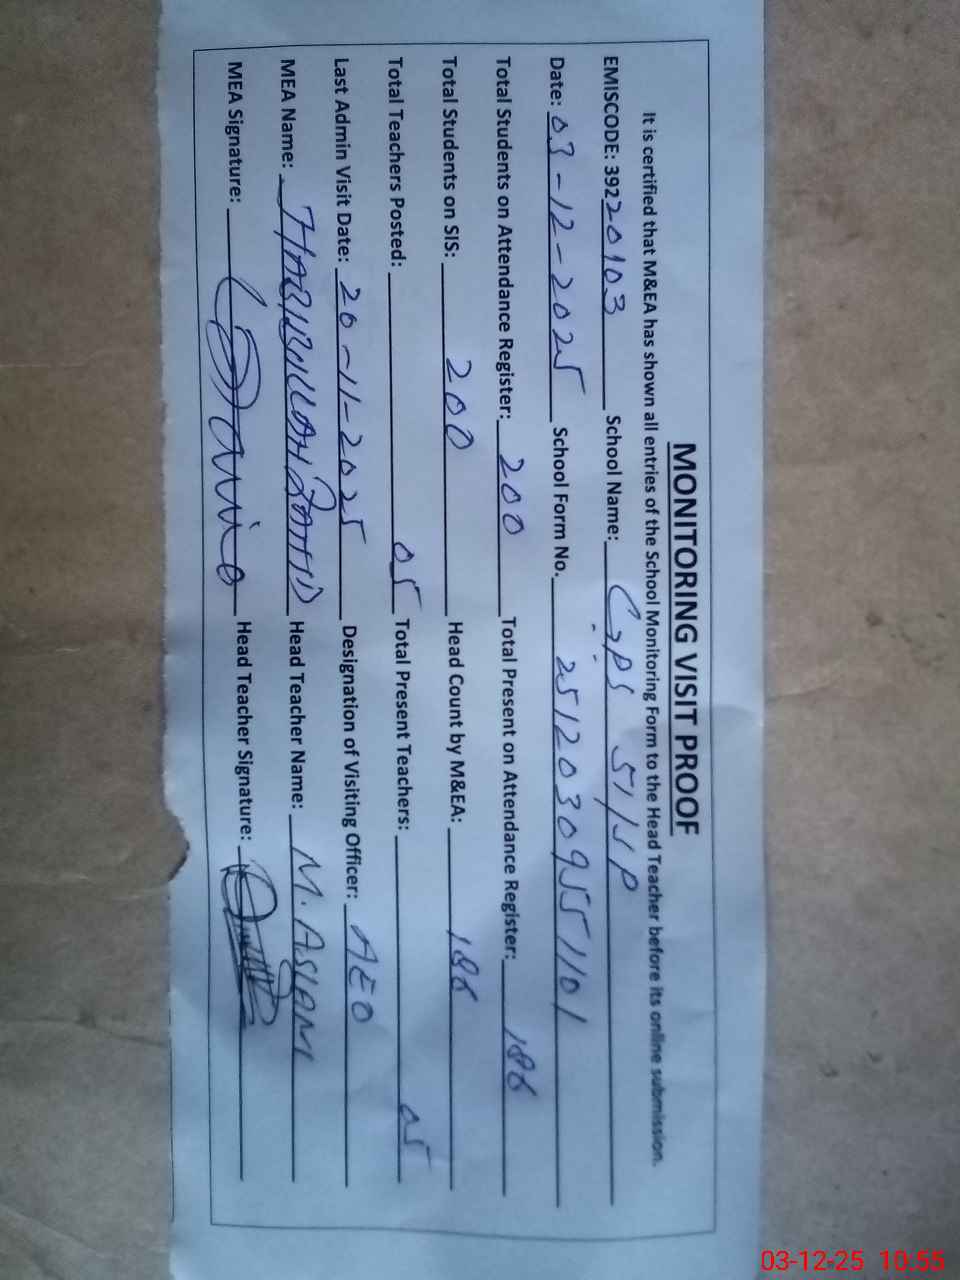 MONITORING VISIT PROOF
It is certified that M&EA has shown all entries of the School Monitoring Form to the Head Teacher before its online submission.
EMISCODE: 39220103 School Name: GPS 51/SP
Date: 03-12-2025 School Form No. 25120309551101
Total Students on Attendance Register: 200 Total Present on Attendance Register: 186
Total Students on SIS: 200 Head Count by M&EA: 186
Total Teachers Posted: 05 Total Present Teachers: 05
Last Admin Visit Date: 20-11-2025 Designation of Visiting Officer: AEO
MEA Name: Head Teacher Name: M. ASLAM
MEA Signature: Head Teacher Signature:
03-12-25 10:55